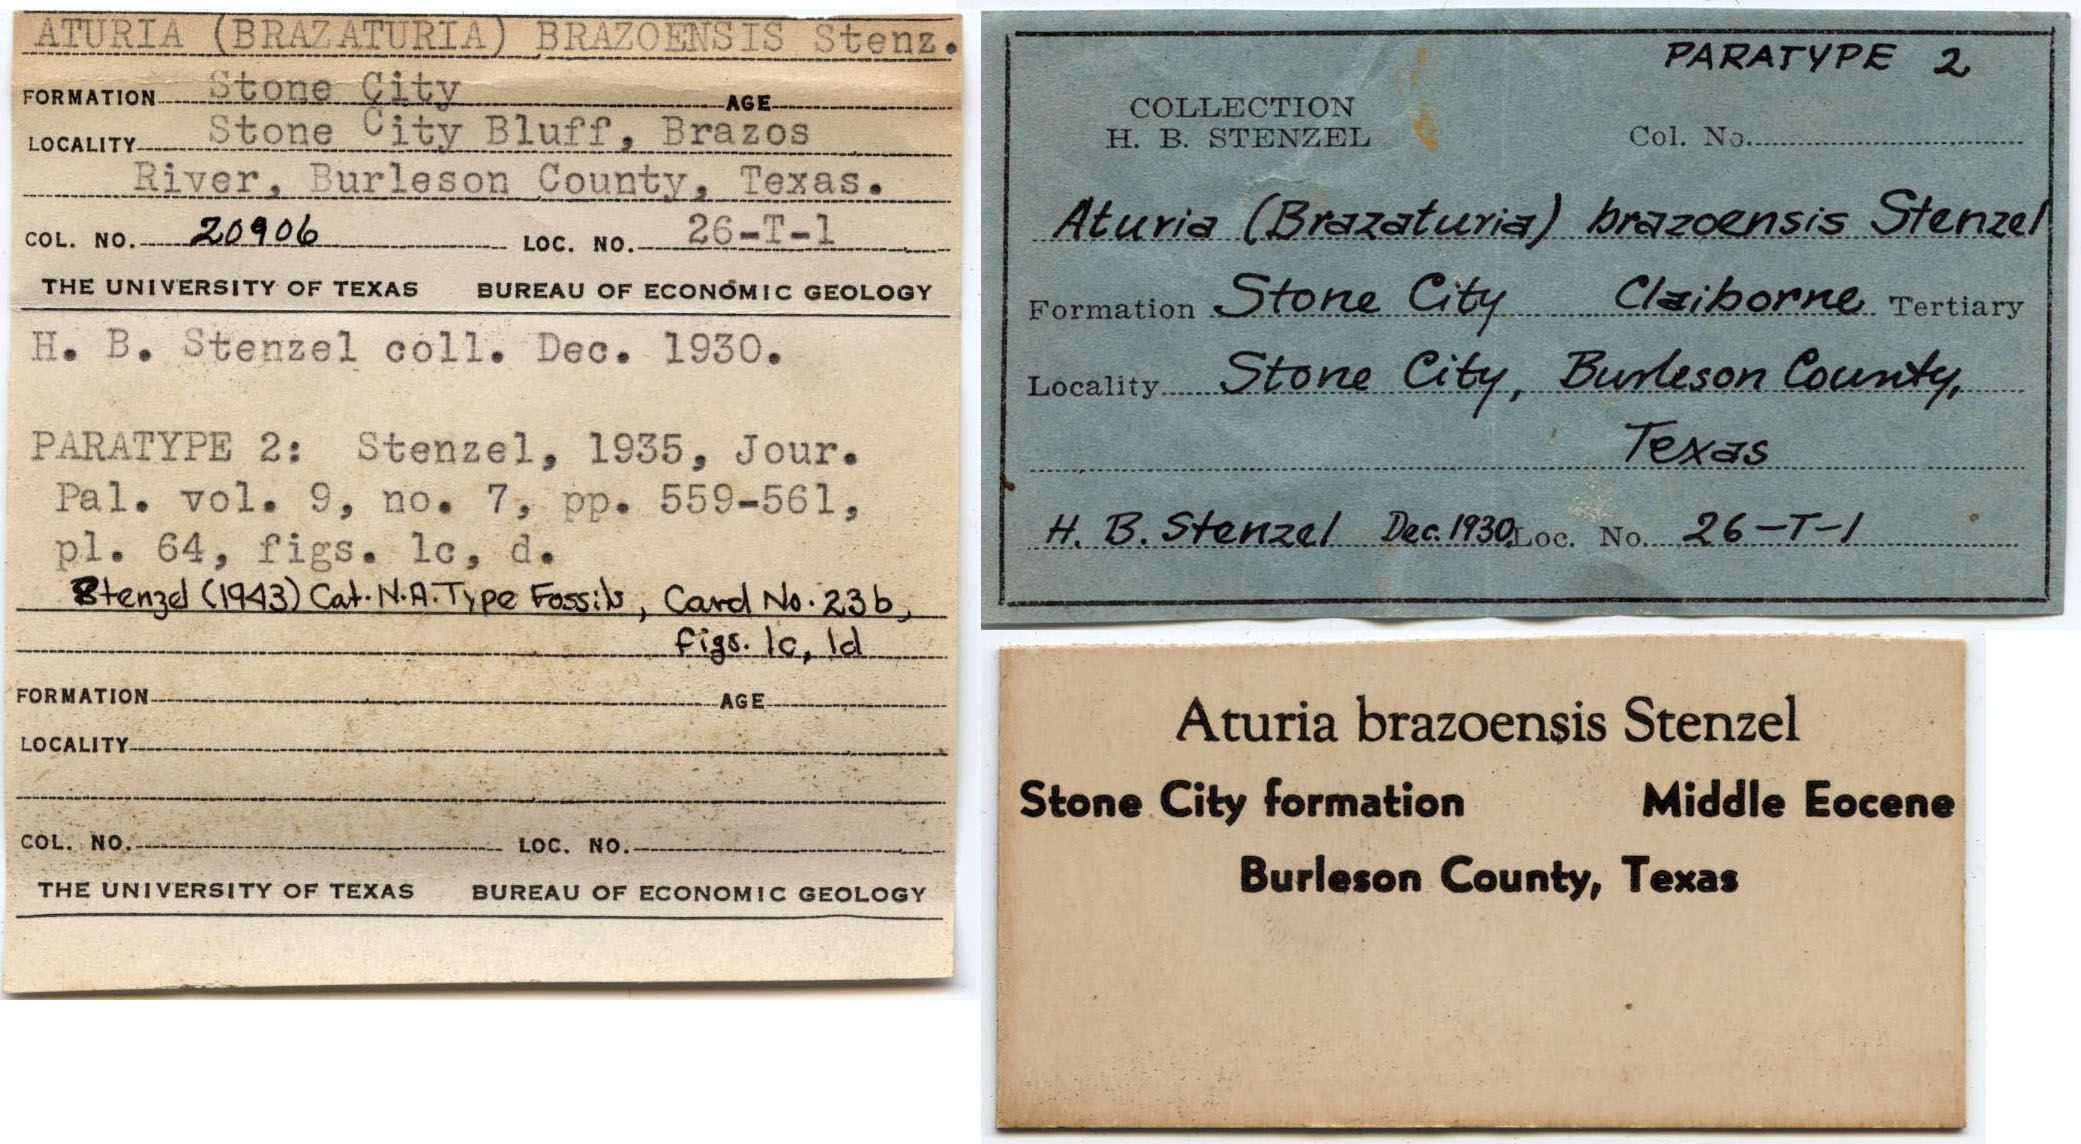 ATURIA (BRAZATURIA) BRAZOENSIS Stenz.
FORMATION Stone City AGE
LOCALITY Stone City Bluff, Brazos
River, Burleson County, Texas.
COL. NO. 20906 LOC. NO. 26-T-1
THE UNIVERSITY OF TEXAS BUREAU OF ECONOMIC GEOLOGY
H. B. Stenzel coll. Dec. 1930.
PARATYPE 2: Stenzel, 1935, Jour.
Pal. vol. 9, no. 7, pp. 559-561,
pl. 64, figs. 1c, d.
Stenzel (1943) Cat. N.A. Type Fossils, Card No. 23b,
figs. 1c, 1d
FORMATION AGE
LOCALITY
COL. NO. LOC. NO.
THE UNIVERSITY OF TEXAS BUREAU OF ECONOMIC GEOLOGY
PARATYPE 2
COLLECTION
H. B. STENZEL Col. No.
Aturia (Brazaturia) brazoensis Stenzel
Formation Stone City Claiborne Tertiary
Locality Stone City, Burleson County,
Texas
H. B. Stenzel Dec. 1930 Loc. No. 26-T-1
Aturia brazoensis Stenzel
Stone City formation Middle Eocene
Burleson County, Texas